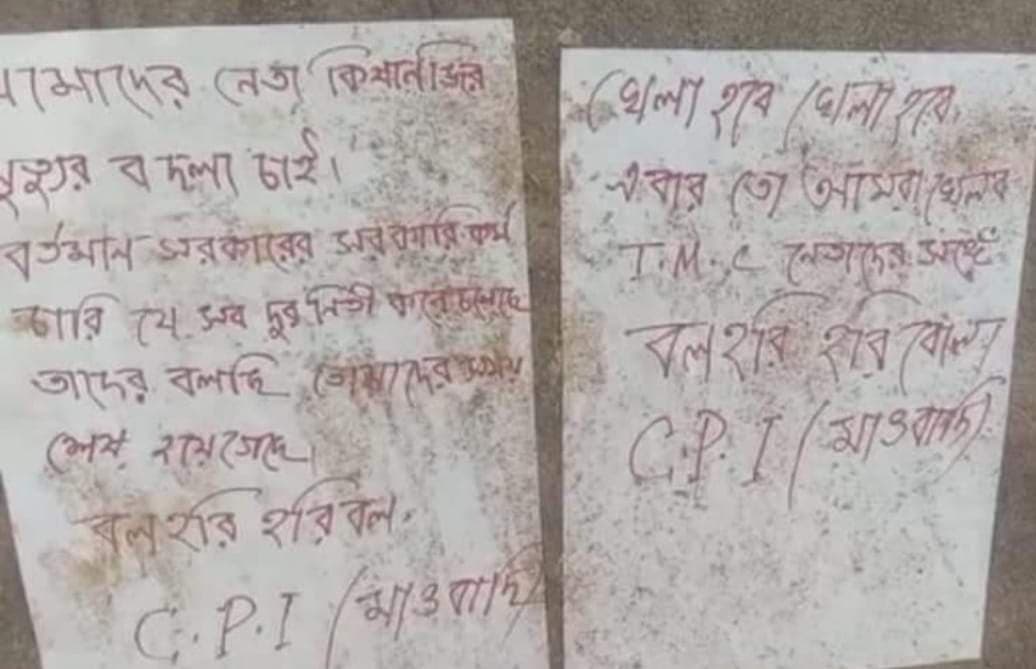 আমাদের নেতা কিষানজির
মৃত্যুর বদলা চাই।
বর্তমান সরকারের সরকারি কর্ম
চারি যে সব দুর্নিতী করে চলেছে
তাদের বলছি তোমাদের সময়
শেষ হয়ে গেছে।
বল হরি হরি বল।
C.P.I (মাওবাদি)
খেলা হবে খেলা হবে,
এবার তো আমরা খেলব
T.M.C নেতাদের সঙ্গে
বল হরি হরি বোল
C.P.I (মাওবাদি)